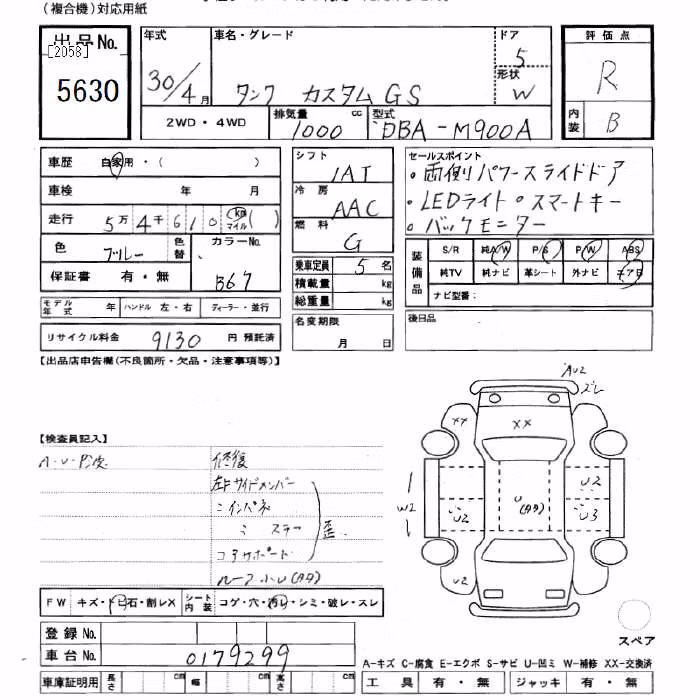 (複合機)対応用紙
出品No.
[2058]
5630
年式
30/4月
車名・グレード
タンク カスタム GS
ドア
5
形状
W
評価点
R
内装
B
2WD・4WD
排気量
1000 cc
型式
DBA-M900A
車歴 自家用・( )
車検 年 月
走行 5万4千610 km マイル( )
色 ブルー 色替
カラーNo.
B67
保証書 有・無
モデル年式 年 ハンドル 左・右 ディーラー・並行
リサイクル料金 9130 円 預託済
シフト
IAT
冷房
AAC
燃料
G
乗車定員 5 名
積載量 kg
総重量 kg
名変期限
月 日
セールスポイント
・両側パワースライドドア
・LEDライト・スマートキー
・バックモニター
装備品
S/R 純A/W P/S P/W ABS
純TV 純ナビ 革シート 外ナビ エアB
ナビ型番:
後日品
【出品店申告欄(不良箇所・欠品・注意事項等)】
【検査員記入】
A・U・P波
修復
左Fサイドメンバー
〃インパネ
〃 ステー
コアサポート
歪
ルーフ小U(タタ)
AU2
ズレ
XX
XX
U2
W2
U2
U
(タタ)
U3
U2
FW キズ・ドビ石・割レX
シート内装 コゲ・穴・汚レ・シミ・破レ・スレ
登録No.
車台No. 0179299
車庫証明用 長さ cm 幅 cm 高さ cm
スペア
A-キズ C-腐食 E-エクボ S-サビ U-凹ミ W-補修 XX-交換済
工具 有・無 ジャッキ 有・無